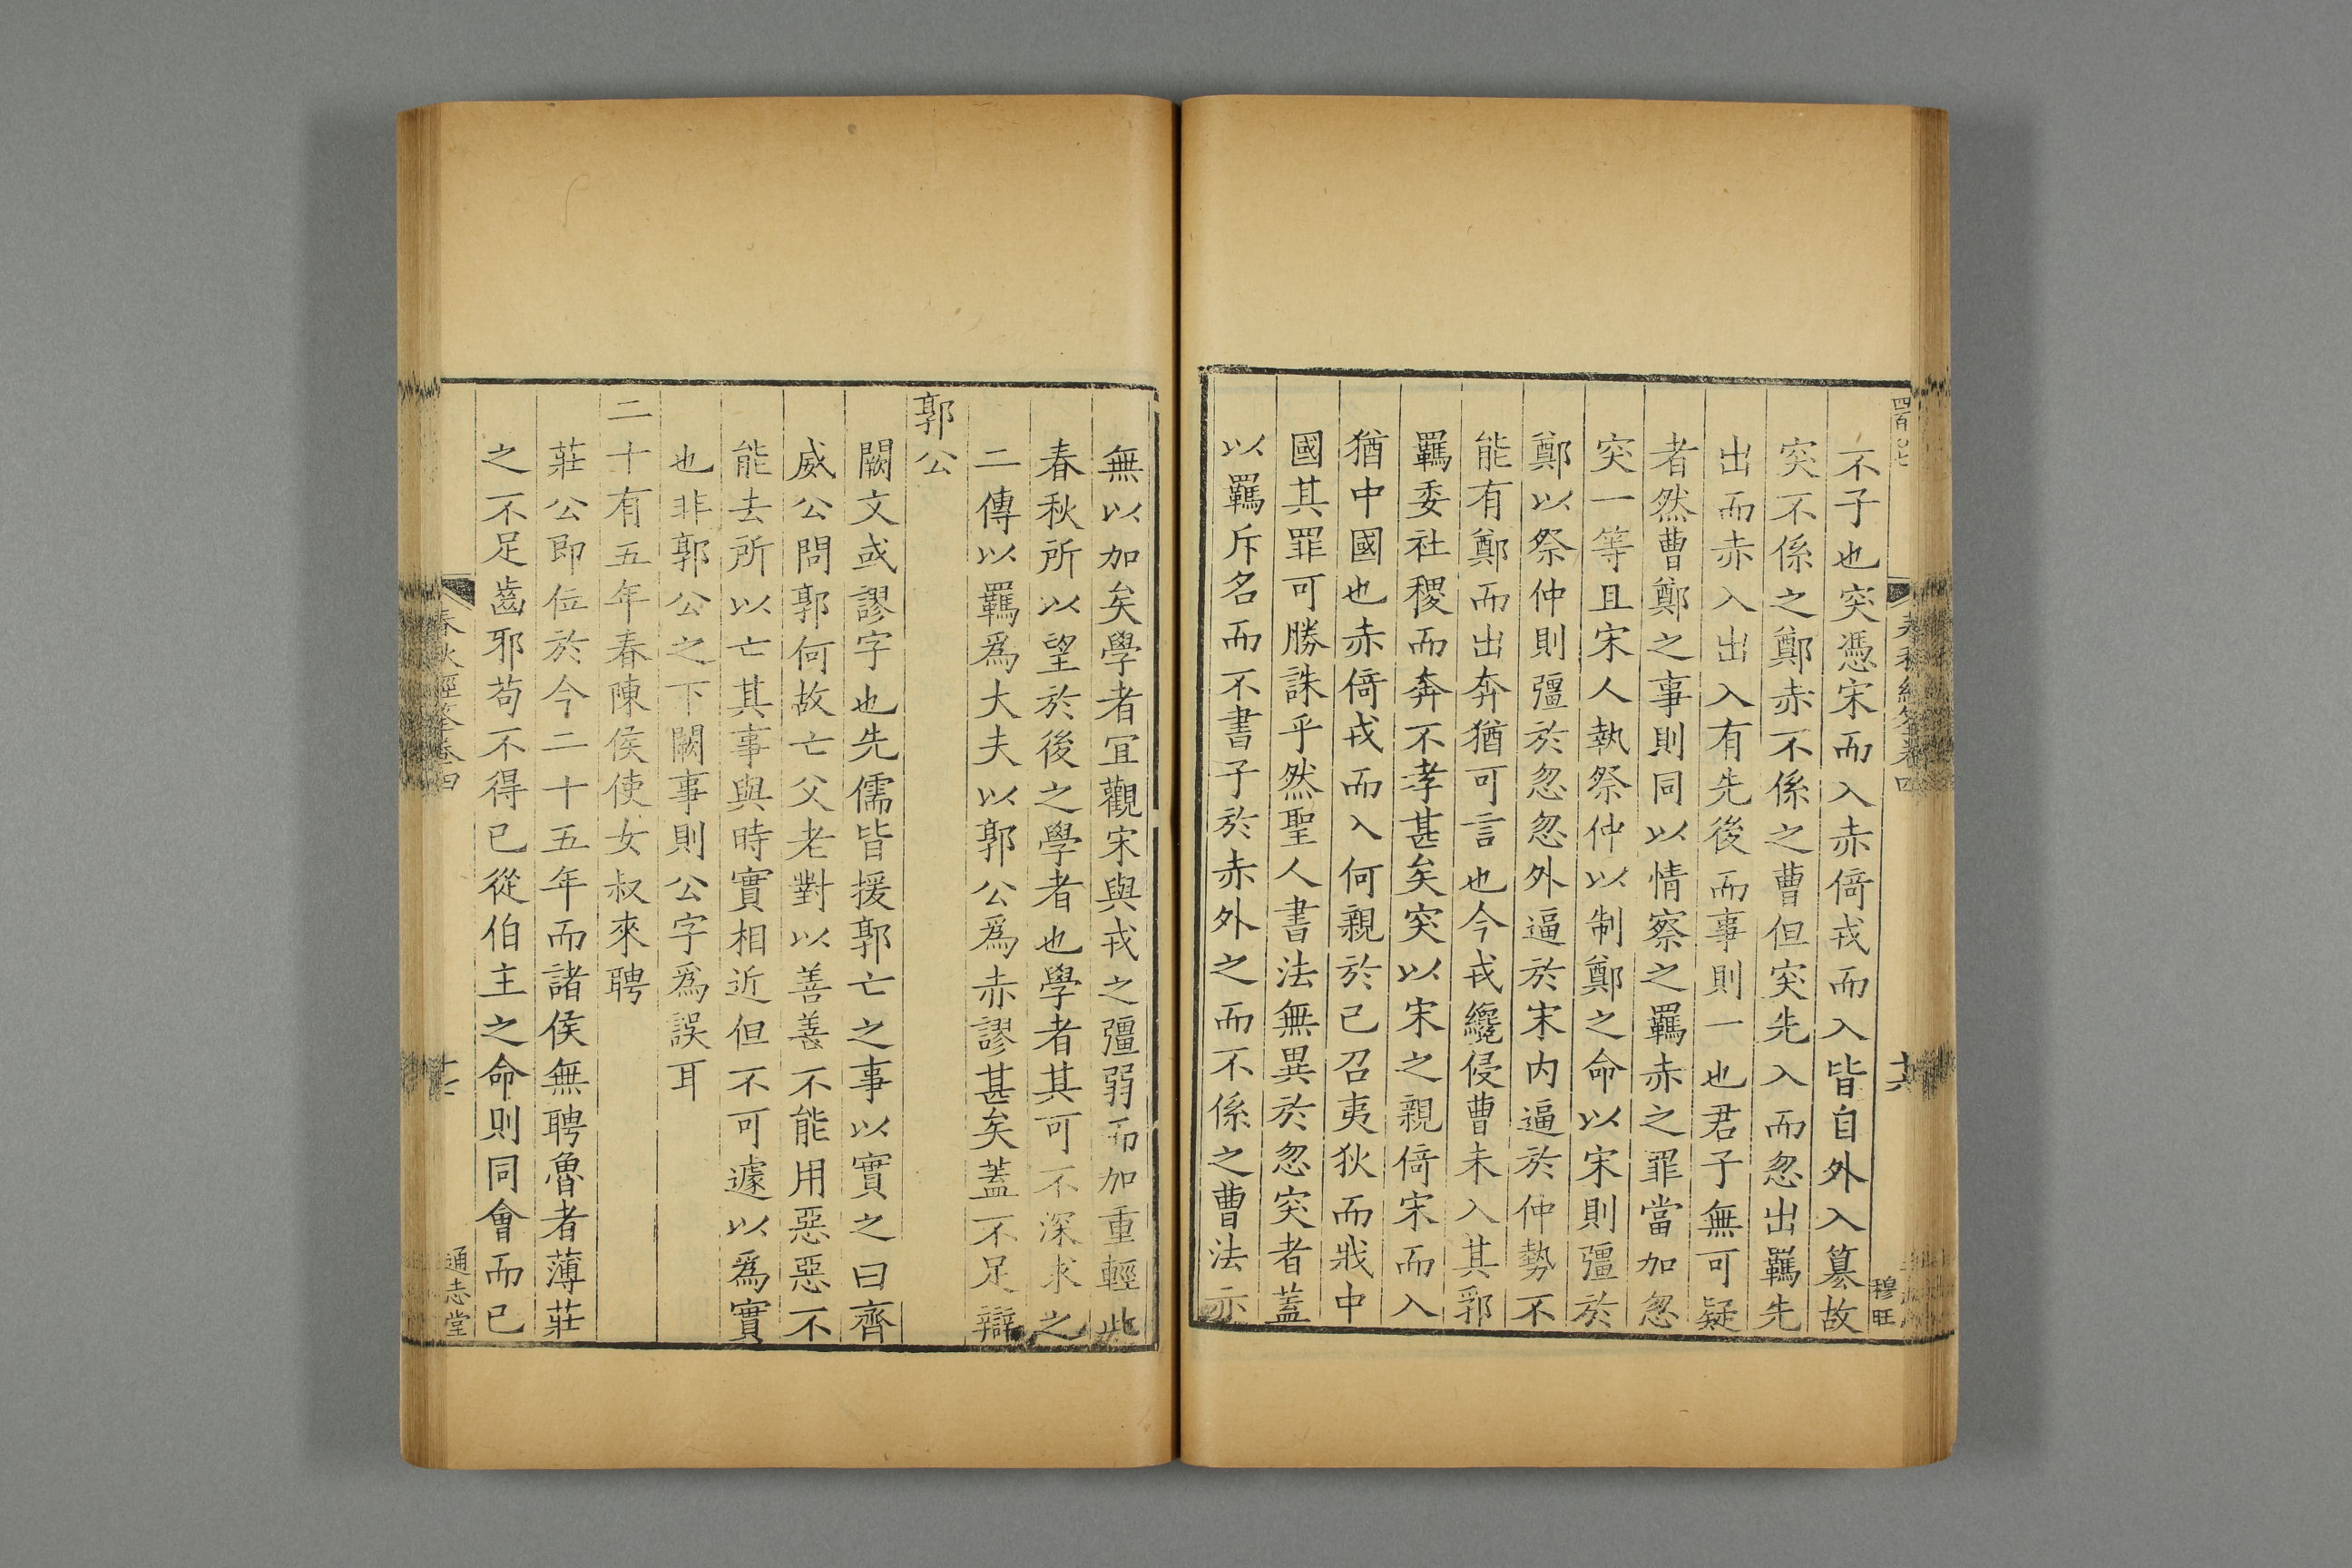 不子也突憑宋而入赤倚戎而入皆自外入簒故
突不係之鄭赤不係之曹但突先入而忽出羈先
出而赤入出入有先後而事則一也君子無可疑
者然曹鄭之事則同以情察之羈赤之罪當加忽
突一等且宋人執祭仲以制鄭之命以宋則彊於
鄭以祭仲則彊於忽忽外逼於宋内逼於仲勢不
能有鄭而出奔猶可言也今戎纔侵曹未入其郛
羈委社稷而奔不孝甚矣突以宋之親倚宋而入
猶中國也赤倚戎而入何親於己召夷狄而戕中
國其罪可勝誅乎然聖人書法無異於忽突者蓋
以羈斥名而不書子於赤外之而不係之曹法亦
十六
穆旺
無以加矣學者宜觀宋與戎之彊弱而加重輕此
春秋所以望於後之學者也學者其可不深求之
二傳以羈爲大夫以郭公爲赤謬甚矣蓋不足辯
郭公
闕文或謬字也先儒皆援郭亡之事以實之曰齊
威公問郭何故亡父老對以善善不能用惡惡不
能去所以亡其事與時實相近但不可遽以爲實
也非郭公之下闕事則公字爲誤耳
二十有五年春陳侯使女叔來聘
莊公即位於今二十五年而諸侯無聘魯者薄莊
之不足齒邪苟不得已從伯主之命則同會而已
春秋經筌卷四
通志堂